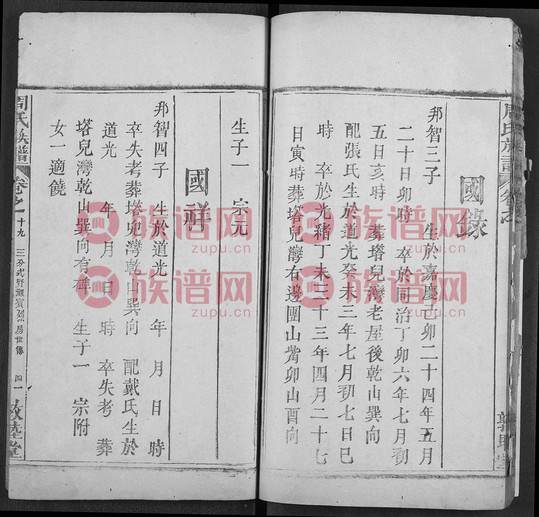 周氏族譜 卷之
國錄
邦智三子 生於嘉慶己卯二十四年五月
二十日卯時 卒於同治丁卯六年七月初
五日亥時 葬塔兒灣老屋後乾山巽向
配張氏生於道光癸未三年七月初七日巳
時 卒於光緒丁未三十三年四月二十七
日寅時葬塔兒灣右邊團山嘴卯山酉向
生子一 宗元
國祥
邦智四子 生於道光 年 月 日 時
卒失考葬塔兒灣乾山巽向 配戴氏生於
道光 年 月 日 時 卒失考 葬
塔兒灣乾山巽向有碑 生子一 宗附
女一適饒
周氏族譜 卷之一 十九 房世傳 四一 敦睦堂
族谱网
族谱网